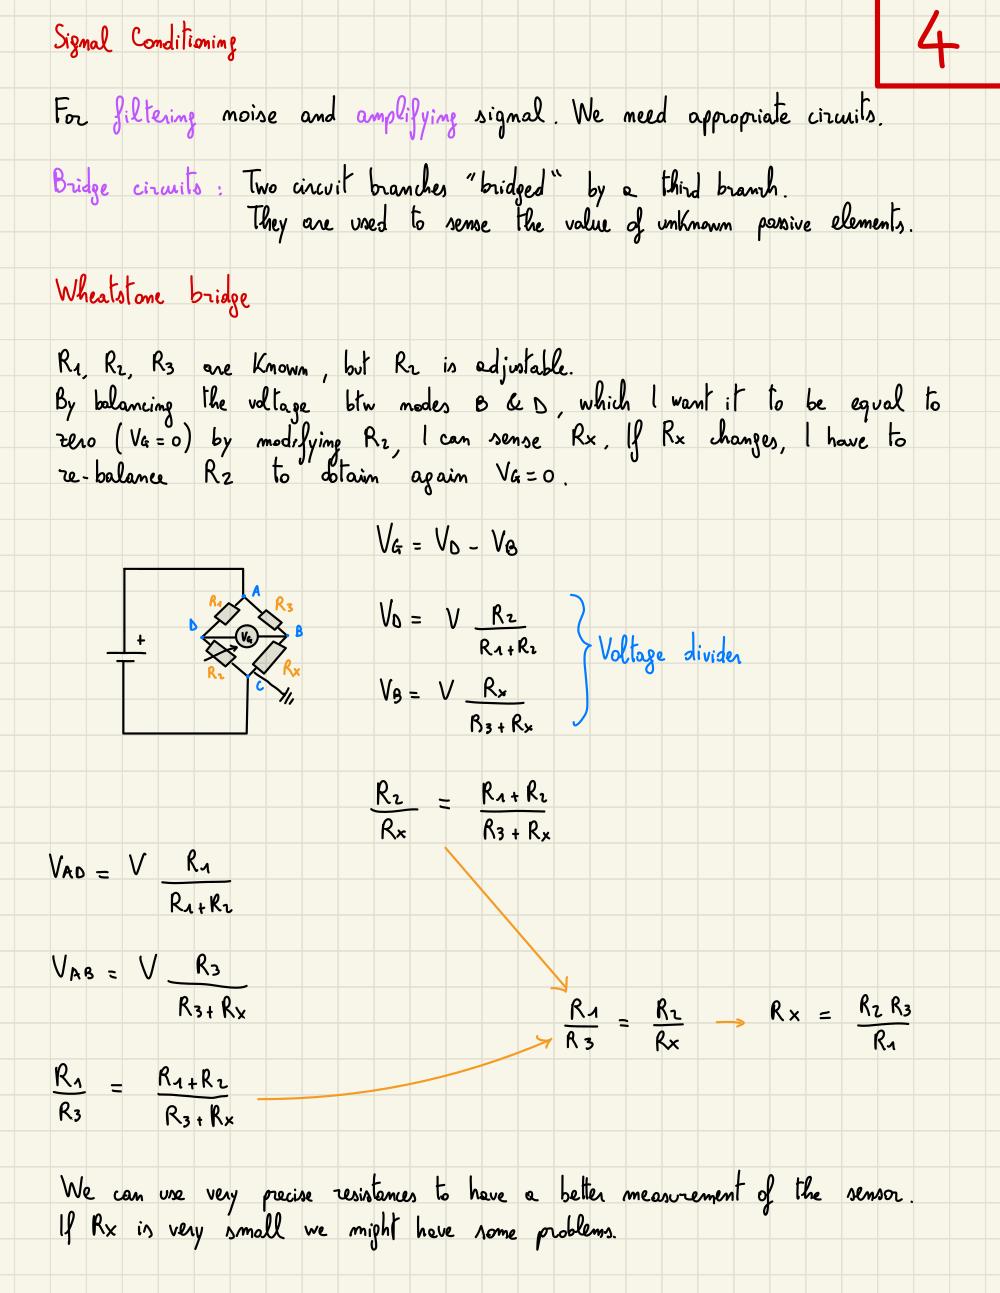 4
Signal Conditioning
For filtering noise and amplifying signal. We need appropriate circuits.
Bridge circuits : Two circuit branches "bridged" by a third branch.
They are used to sense the value of unknown passive elements.
Wheatstone bridge
R1, R2, R3 are known, but R2 is adjustable.
By balancing the voltage btw nodes B & D, which I want it to be equal to
zero (VG = 0) by modifying R2, I can sense Rx. If Rx changes, I have to
re-balance R2 to obtain again VG = 0.
VG = VD - VB
A
R1 R3
D VG B
+
R2 Rx
C
VD = V R2 / (R1 + R2)
VB = V Rx / (R3 + Rx)
Voltage divider
R2 / Rx = (R1 + R2) / (R3 + Rx)
VAD = V R1 / (R1 + R2)
VAB = V R3 / (R3 + Rx)
R1 / R3 = R2 / Rx → Rx = R2 R3 / R1
R1 / R3 = (R1 + R2) / (R3 + Rx)
We can use very precise resistances to have a better measurement of the sensor.
If Rx is very small we might have some problems.